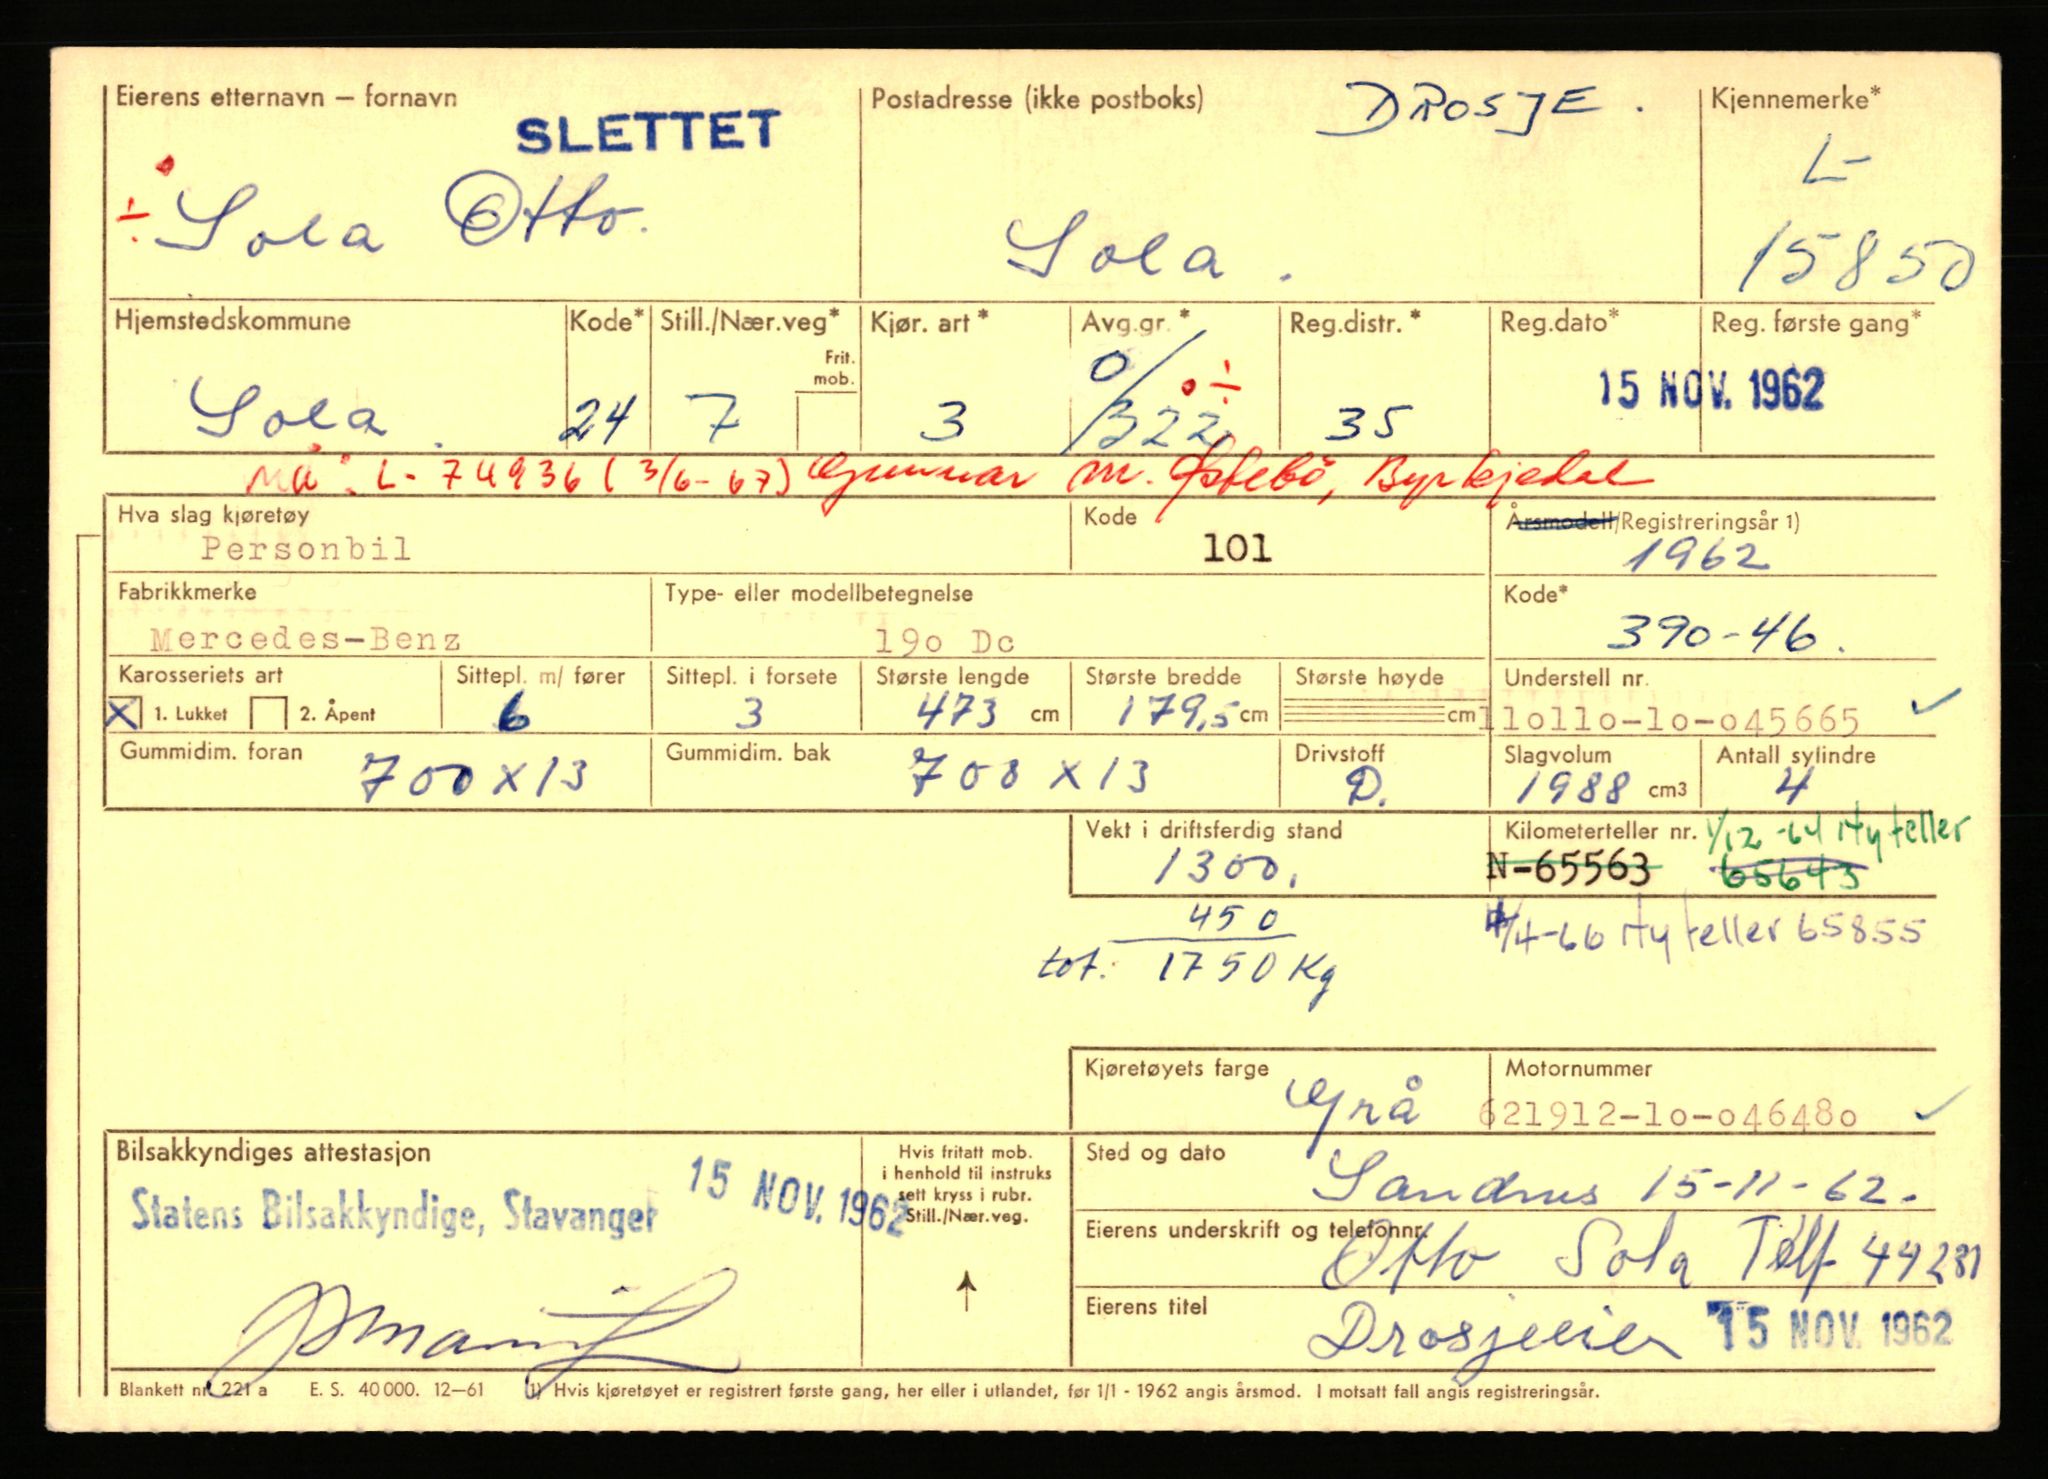 Eierens etternavn – fornavn
SLETTET
Sola Otto.
Postadresse (ikke postboks)
DROSJE.
Sola.
Kjennemerke*
L-
15850
Hjemstedskommune
Sola.
Kode*
24
Still./Nær.veg*
7
Frit.
mob.
Kjør. art*
3
Avg.gr.*
0/
322
Reg.distr.*
35
Reg.dato*
Reg. første gang*
15 NOV. 1962
Nå: L- 74936 (3/6-67) Gunnar M. Østebö, Byrkjedal
Hva slag kjøretøy
Personbil
Kode
101
Årsmodell/Registreringsår 1)
1962
Fabrikkmerke
Mercedes-Benz
Type- eller modellbetegnelse
19o Dc
Kode*
390-46.
Karosseriets art
X 1. Lukket 2. Åpent
Sittepl. m/ fører
6
Sittepl. i forsete
3
Største lengde
473 cm
Største bredde
179,5 cm
Største høyde
cm
Understell nr.
11o11o-1o-o45665
Gummidim. foran
700 x 13
Gummidim. bak
700 x 13
Drivstoff
D.
Slagvolum
1988 cm3
Antall sylindre
4
Vekt i driftsferdig stand
1300,
450
tot. 1750 Kg
Kilometerteller nr.
N-65563
1/12-64 Ny teller
65643
4/4-66 Ny teller 65855
Kjøretøyets farge
Grå
Motornummer
621912-1o-o4648o
Bilsakkyndiges attestasjon
Statens Bilsakkyndige, Stavanger
15 NOV. 1962
Hvis fritatt mob.
i henhold til instruks
sett kryss i rubr.
Still./Nær.veg.
Sted og dato
Sandnes 15-11-62.
Eierens underskrift og telefonnr.
Otto Sola Telf 44281
Eierens titel
Drosjeeier
15 NOV. 1962
Blankett nr. 221 a E. S. 40 000. 12–61 1) Hvis kjøretøyet er registrert første gang, her eller i utlandet, før 1/1 - 1962 angis årsmod. I motsatt fall angis registreringsår.